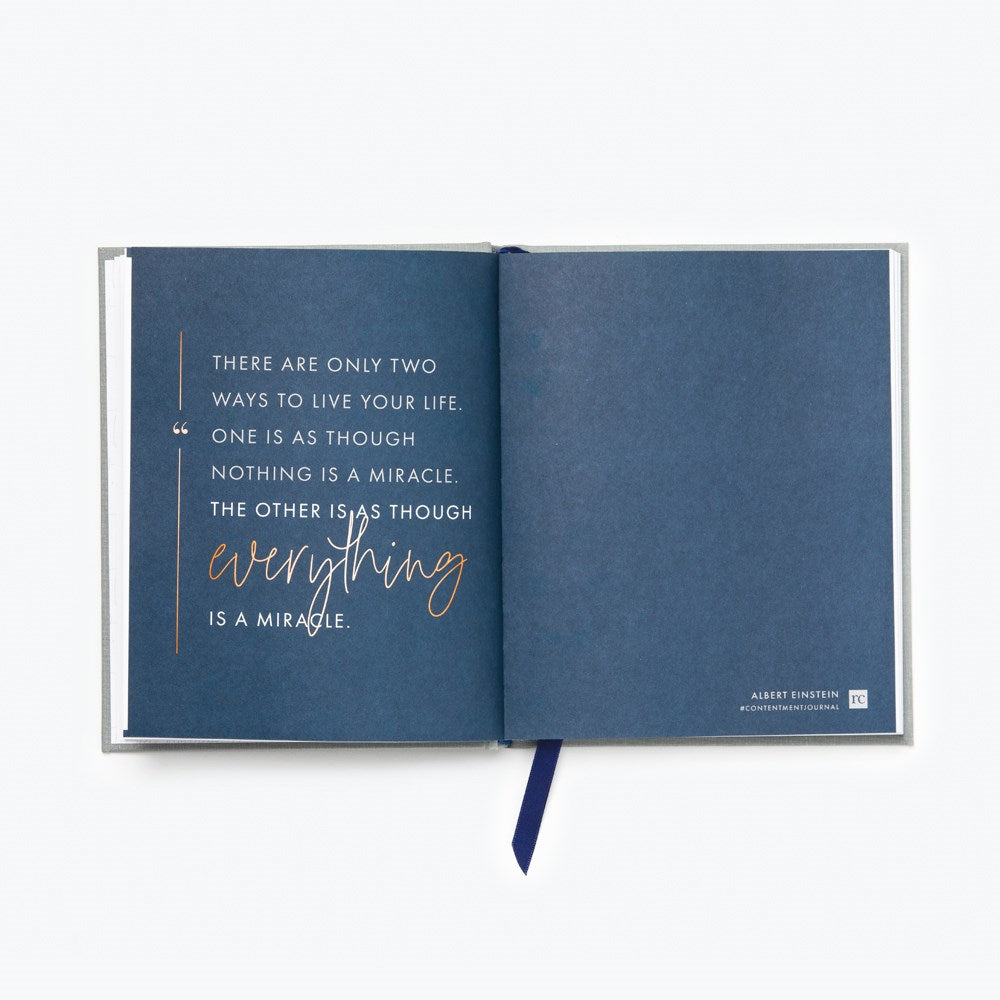 THERE ARE ONLY TWO
WAYS TO LIVE YOUR LIFE.
“
ONE IS AS THOUGH
NOTHING IS A MIRACLE.
THE OTHER IS AS THOUGH
everything
IS A MIRACLE.
ALBERT EINSTEIN
#CONTENTMENTJOURNAL
rc